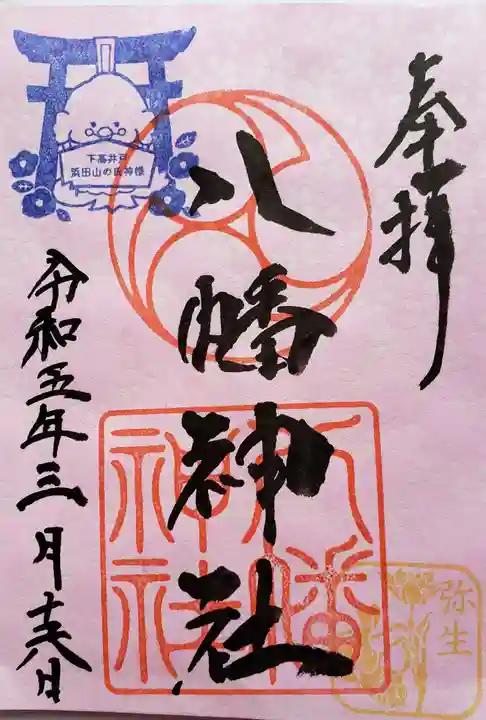 奉拝
八幡神社
八幡神社
令和五年三月十六日
下高井戸
浜田山の氏神様
弥生